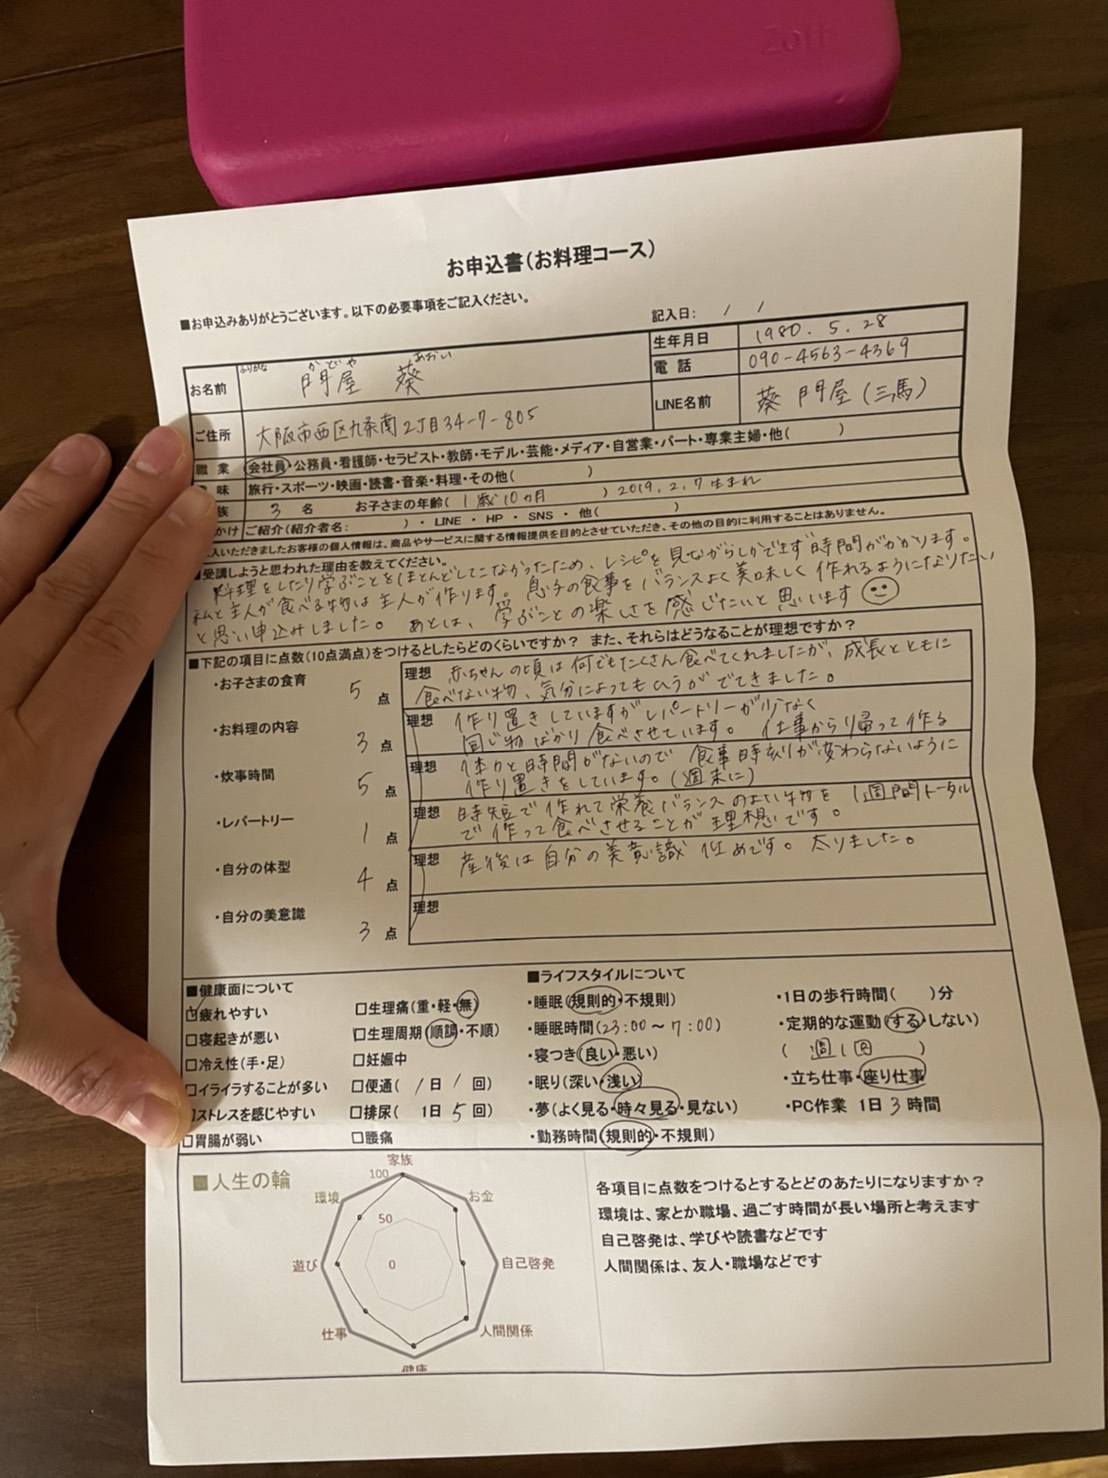 Zoff
お申込書(お料理コース)
■お申込みありがとうございます。以下の必要事項をご記入ください。
記入日: / /
ふりがな かどや あおい
お名前 門屋 葵
生年月日 1980.5.28
電話 090-4563-4369
ご住所 大阪市西区九条南2丁目34-7-805
LINE名前 葵 門屋(三馬)
職業 会社員・公務員・看護師・セラピスト・教師・モデル・芸能・メディア・自営業・パート・専業主婦・他( )
味 旅行・スポーツ・映画・読書・音楽・料理・その他( )
族 3 名 お子さまの年齢( 1歳10ヵ月 ) 2019.2.7生まれ
かけ ご紹介(紹介者名: )・ LINE ・ HP ・ SNS ・ 他( )
入いただきましたお客様の個人情報は、商品やサービスに関する情報提供を目的とさせていただき、その他の目的に利用することはありません。
■受講しようと思われた理由を教えてください。
料理をしたり学ぶことをほとんどしてこなかったため、レシピを見ながらしかできず時間がかかります。
私と主人が食べる物は主人が作ります。息子の食事をバランスよく美味しく作れるようになりたい
と思い申込みしました。あとは、学ぶことの楽しさを感じたいと思います
■下記の項目に点数(10点満点)をつけるとしたらどのくらいですか? また、それらはどうなることが理想ですか?
・お子さまの食育 5 点
理想 赤ちゃんの頃は何でもたくさん食べてくれましたが、成長とともに
食べない物、気分によってもムラがでてきました。
・お料理の内容 3 点
理想 作り置きしていますがレパートリーが少なく
同じ物ばかり食べさせています。仕事から帰って作る
・炊事時間 5 点
理想 体力と時間がないので 食事時刻が変わらないように
作り置きをしています。(週末に)
・レパートリー 1 点
理想 時短で作れて栄養バランスのよい物を 1週間トータル
で作って食べさせることが理想です。
・自分の体型 4 点
理想 産後は自分の美意識 低めです。太りました。
・自分の美意識 3 点
理想
■健康面について
疲れやすい
□寝起きが悪い
□冷え性(手・足)
□イライラすることが多い
□ストレスを感じやすい
□胃腸が弱い
□生理痛(重・軽・無)
□生理周期(順調・不順)
□妊娠中
□便通( 1日 1 回)
□排尿( 1日 5 回)
□腰痛
■ライフスタイルについて
・睡眠(規則的・不規則)
・睡眠時間(23:00〜7:00)
・寝つき(良い・悪い)
・眠り(深い・浅い)
・夢(よく見る・時々見る・見ない)
・勤務時間(規則的・不規則)
・1日の歩行時間( )分
・定期的な運動(する・しない)
( 週1回 )
・立ち仕事・座り仕事
・PC作業 1日 3 時間
■人生の輪
家族
100
環境
お金
50
遊び
0
自己啓発
仕事
人間関係
健康
各項目に点数をつけるとするとどのあたりになりますか?
環境は、家とか職場、過ごす時間が長い場所と考えます
自己啓発は、学びや読書などです
人間関係は、友人・職場などです